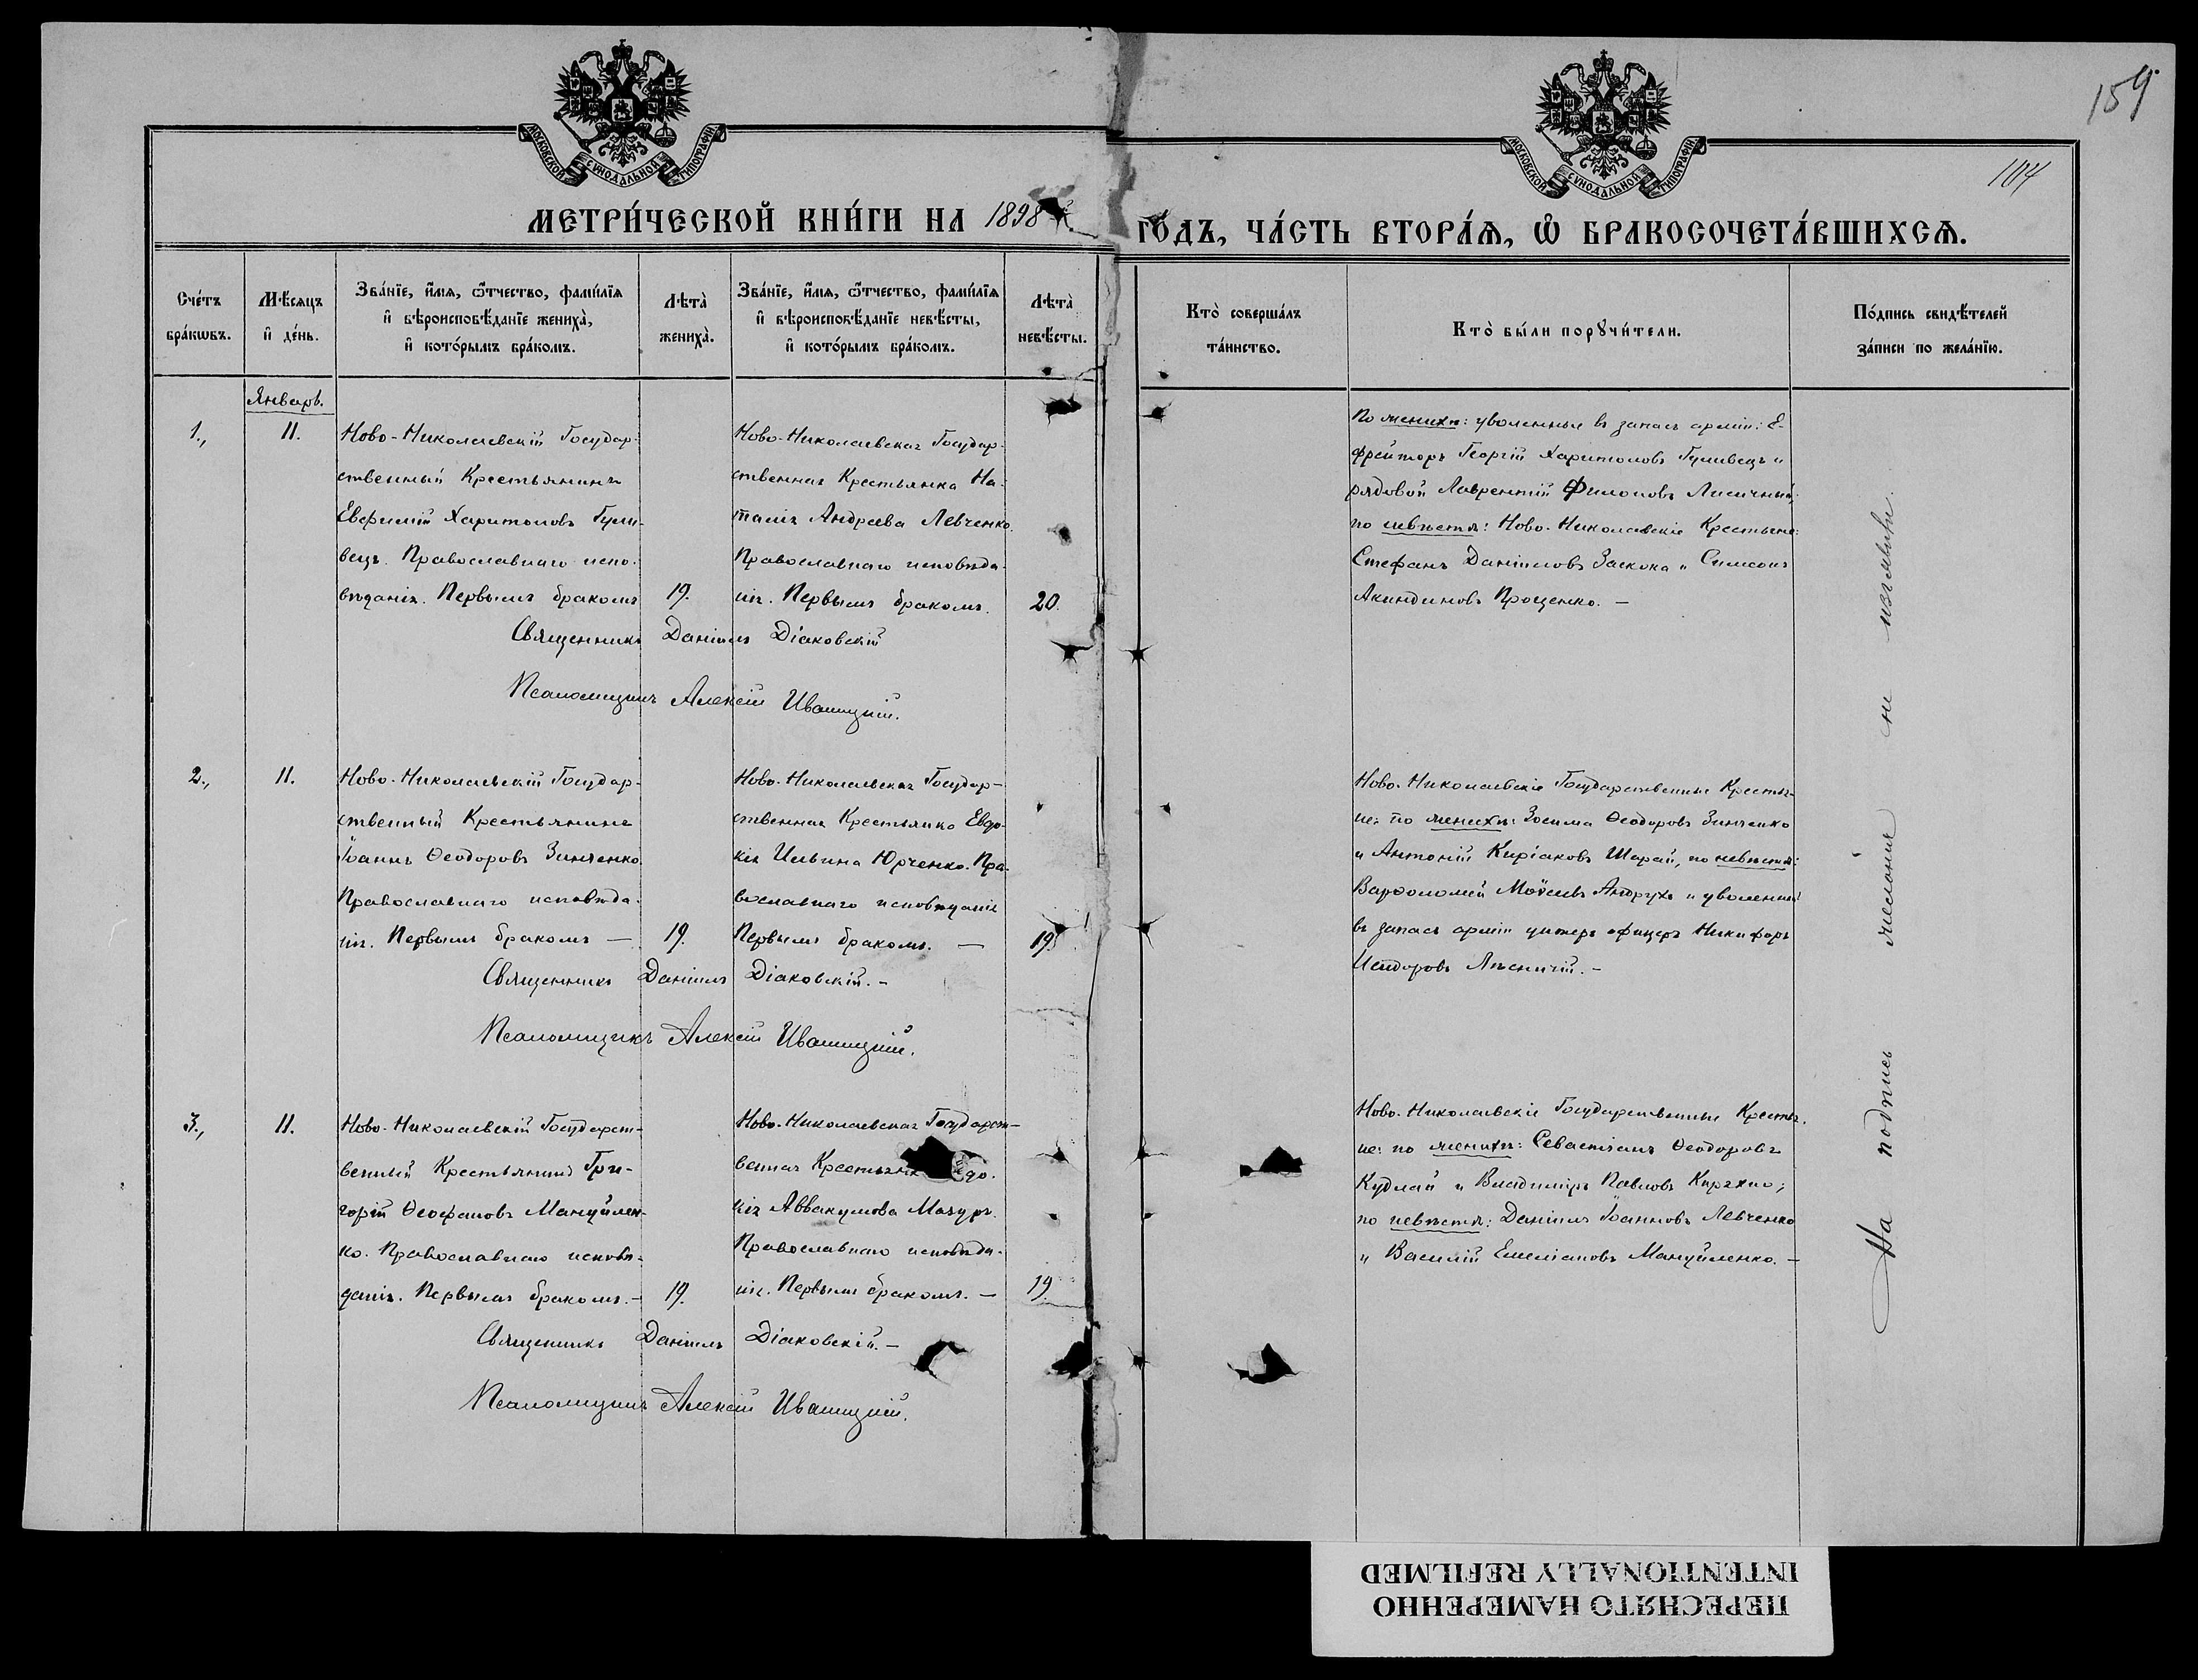 159
104
МОСКОВСКОЙ СѴНОДАЛЬНОЙ ТИПОГРАФІИ
МОСКОВСКОЙ СѴНОДАЛЬНОЙ ТИПОГРАФІИ
МЕТРИ́ЧЕСКОЙ КНИ́ГИ НА 1898 ГО́ДЪ, ЧА́СТЬ ВТОРА́Ѧ, Ѽ БРАКОСОЧЕТА́ВШИХСѦ.
Сче́тъ
бра́кѡвъ.
Мѣ́сяцъ
и҆ де́нь.
Зва́нїе, и҆́мя, ѻ҆́тчество, фамі́лїя
и҆ вѣроисповѣ́данїе жениха̀,
и҆ кото́рымъ бра́комъ.
Лѣта̀
жениха̀.
Зва́нїе, и҆́мя, ѻ҆́тчество, фамі́лїя
и҆ вѣроисповѣ́данїе невѣ́сты,
и҆ кото́рымъ бра́комъ.
Лѣта̀
невѣ́сты.
Кто̀ соверша́лъ
та́инство.
Кто̀ бы́ли порꙋчи́тели.
По́дпись свидѣ́телей
за́писи по жела́нїю.
Январь.
1., 11.
Ново-Николаевскій Государ-
ственный Крестьянинъ
Евфимій Харитоновъ Гули-
вецъ. Православнаго испо-
вѣданія. Первымъ бракомъ 19.
Ново-Николаевская Государ-
ственная Крестьянка На-
талія Андреева Левченко.
Православнаго исповѣда-
нія. Первымъ бракомъ. 20.
Священникъ Даніилъ Діаковскій
Псаломщикъ Алексій Ивашицкій.
По женихѣ: уволенные въ запасъ арміи: Е-
фрейторъ Георгій Харитоновъ Гуливецъ и
рядовой Лаврентій Филоповъ Лисичный.
по невѣстѣ: Ново-Николаевскіе Крестьяне:
Стефанъ Даніиловъ Заскока и Симеонъ
Акиндиновъ Проценко. —
2., 11.
Ново-Николаевскій Государ-
ственный Крестьянинъ
Іоаннъ Ѳеодоровъ Зинченко.
Православнаго исповѣда-
нія. Первымъ бракомъ — 19.
Ново-Николаевская Государ-
ственная Крестьянка Евдо-
кія Ильина Юрченко. Пра-
вославнаго исповѣданія
Первымъ бракомъ. — 19.
Священникъ Даніилъ Діаковскій. —
Псаломщикъ Алексій Ивашицкій.
Ново-Николаевскіе Государственные Крестья-
не: по женихѣ: Зосима Ѳеодоровъ Зинченко
и Антоній Киріаковъ Шарай, по невѣстѣ:
Варѳоломей Моѵсеевъ Андрухъ и уволенный
въ запасъ арміи унтеръ офицеръ Никифоръ
Исидоровъ Лѣсничій. —
3., 11.
Ново-Николаевскій Государст-
венный Крестьянинъ Гри-
горій Ѳеофановъ Мануйлен-
ко. Православнаго исповѣ-
данія. Первымъ бракомъ. — 19.
Ново-Николаевская Государст-
венная Крестьянк до-
кія Аввакумова Мазуръ.
Православнаго исповѣда-
нія. Первымъ бракомъ. — 19.
Священникъ Даніилъ Діаковскій. —
Псаломщикъ Алексій Ивашицкій.
Ново-Николаевскіе Государственные Крестья-
не: по женихѣ: Севастіанъ Ѳеодоровъ
Кудлай и Владиміръ Павловъ Киряхно;
по невѣстѣ: Даніилъ Іоанновъ Левченко
и Василій Емеліановъ Мануйленко. —
На подпись желанія не изъявили.
ПЕРЕСНЯТО НАМЕРЕННО
INTENTIONALLY REFILMED